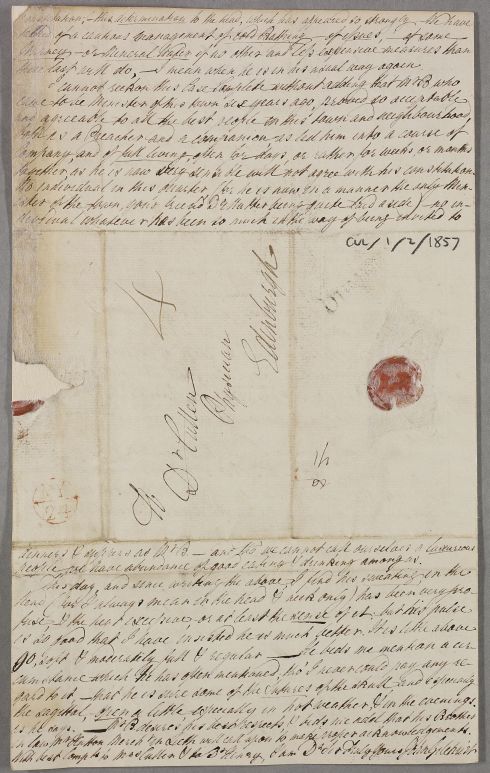 this determination to the head, which has already so strongly
of a cautious management of Cold Bathing - of issues, of some
Chimney or General Water if no other and less expensive measures than
these last will do, - I mean when he is in his usual way again
I cannot reckon this case complete without adding that Mr B who
came to be Minister of this town six years ago, proved so acceptable
and agreeable to all the best people in this town and neighbourhood,
both as a Preacher and a companion as led him into a course of
Company and of full living often for days, or rather for weeks or months
together, as he is now very sensible will not agree with his constitution
No individual in this quarter (for he is now in a manner the only Min-
ister of the Town, your friend Dr being quite laid aside) - no in-
dividual whatever has been so much in the way of being invited to
CUL/1/2/1857
4
To
Dr Cullen
Physician
Edinburgh
dinners & suppers as Mr B. - and tho' we cannot call ourselves a luxurious
people we have abundance of good eating & drinking among us.
This day, and since writing the above, I find his sweating in the
head (for I always mean in the head & neck only) has been very pro-
fuse, & the heat excessive, or at least the sense of it: but his pulse
is so good that I have insisted he is much better. It is like above
90, soft & moderately full & regular - He bids me mention a cir-
cumstance which he has often mentioned, tho' I never could pay any re-
gard to it - that he is sure some of the sutures of the skull, and especially
the sagittal, open a little especially in hot weather & in the evenings.
as he says. - Mr B. desires his best respects & bids me add that his Brother
in law Mr in Leith will call upon you to make proper acknowledgements.
With best Compts to Mrs Cullen & to I am Dr Sir